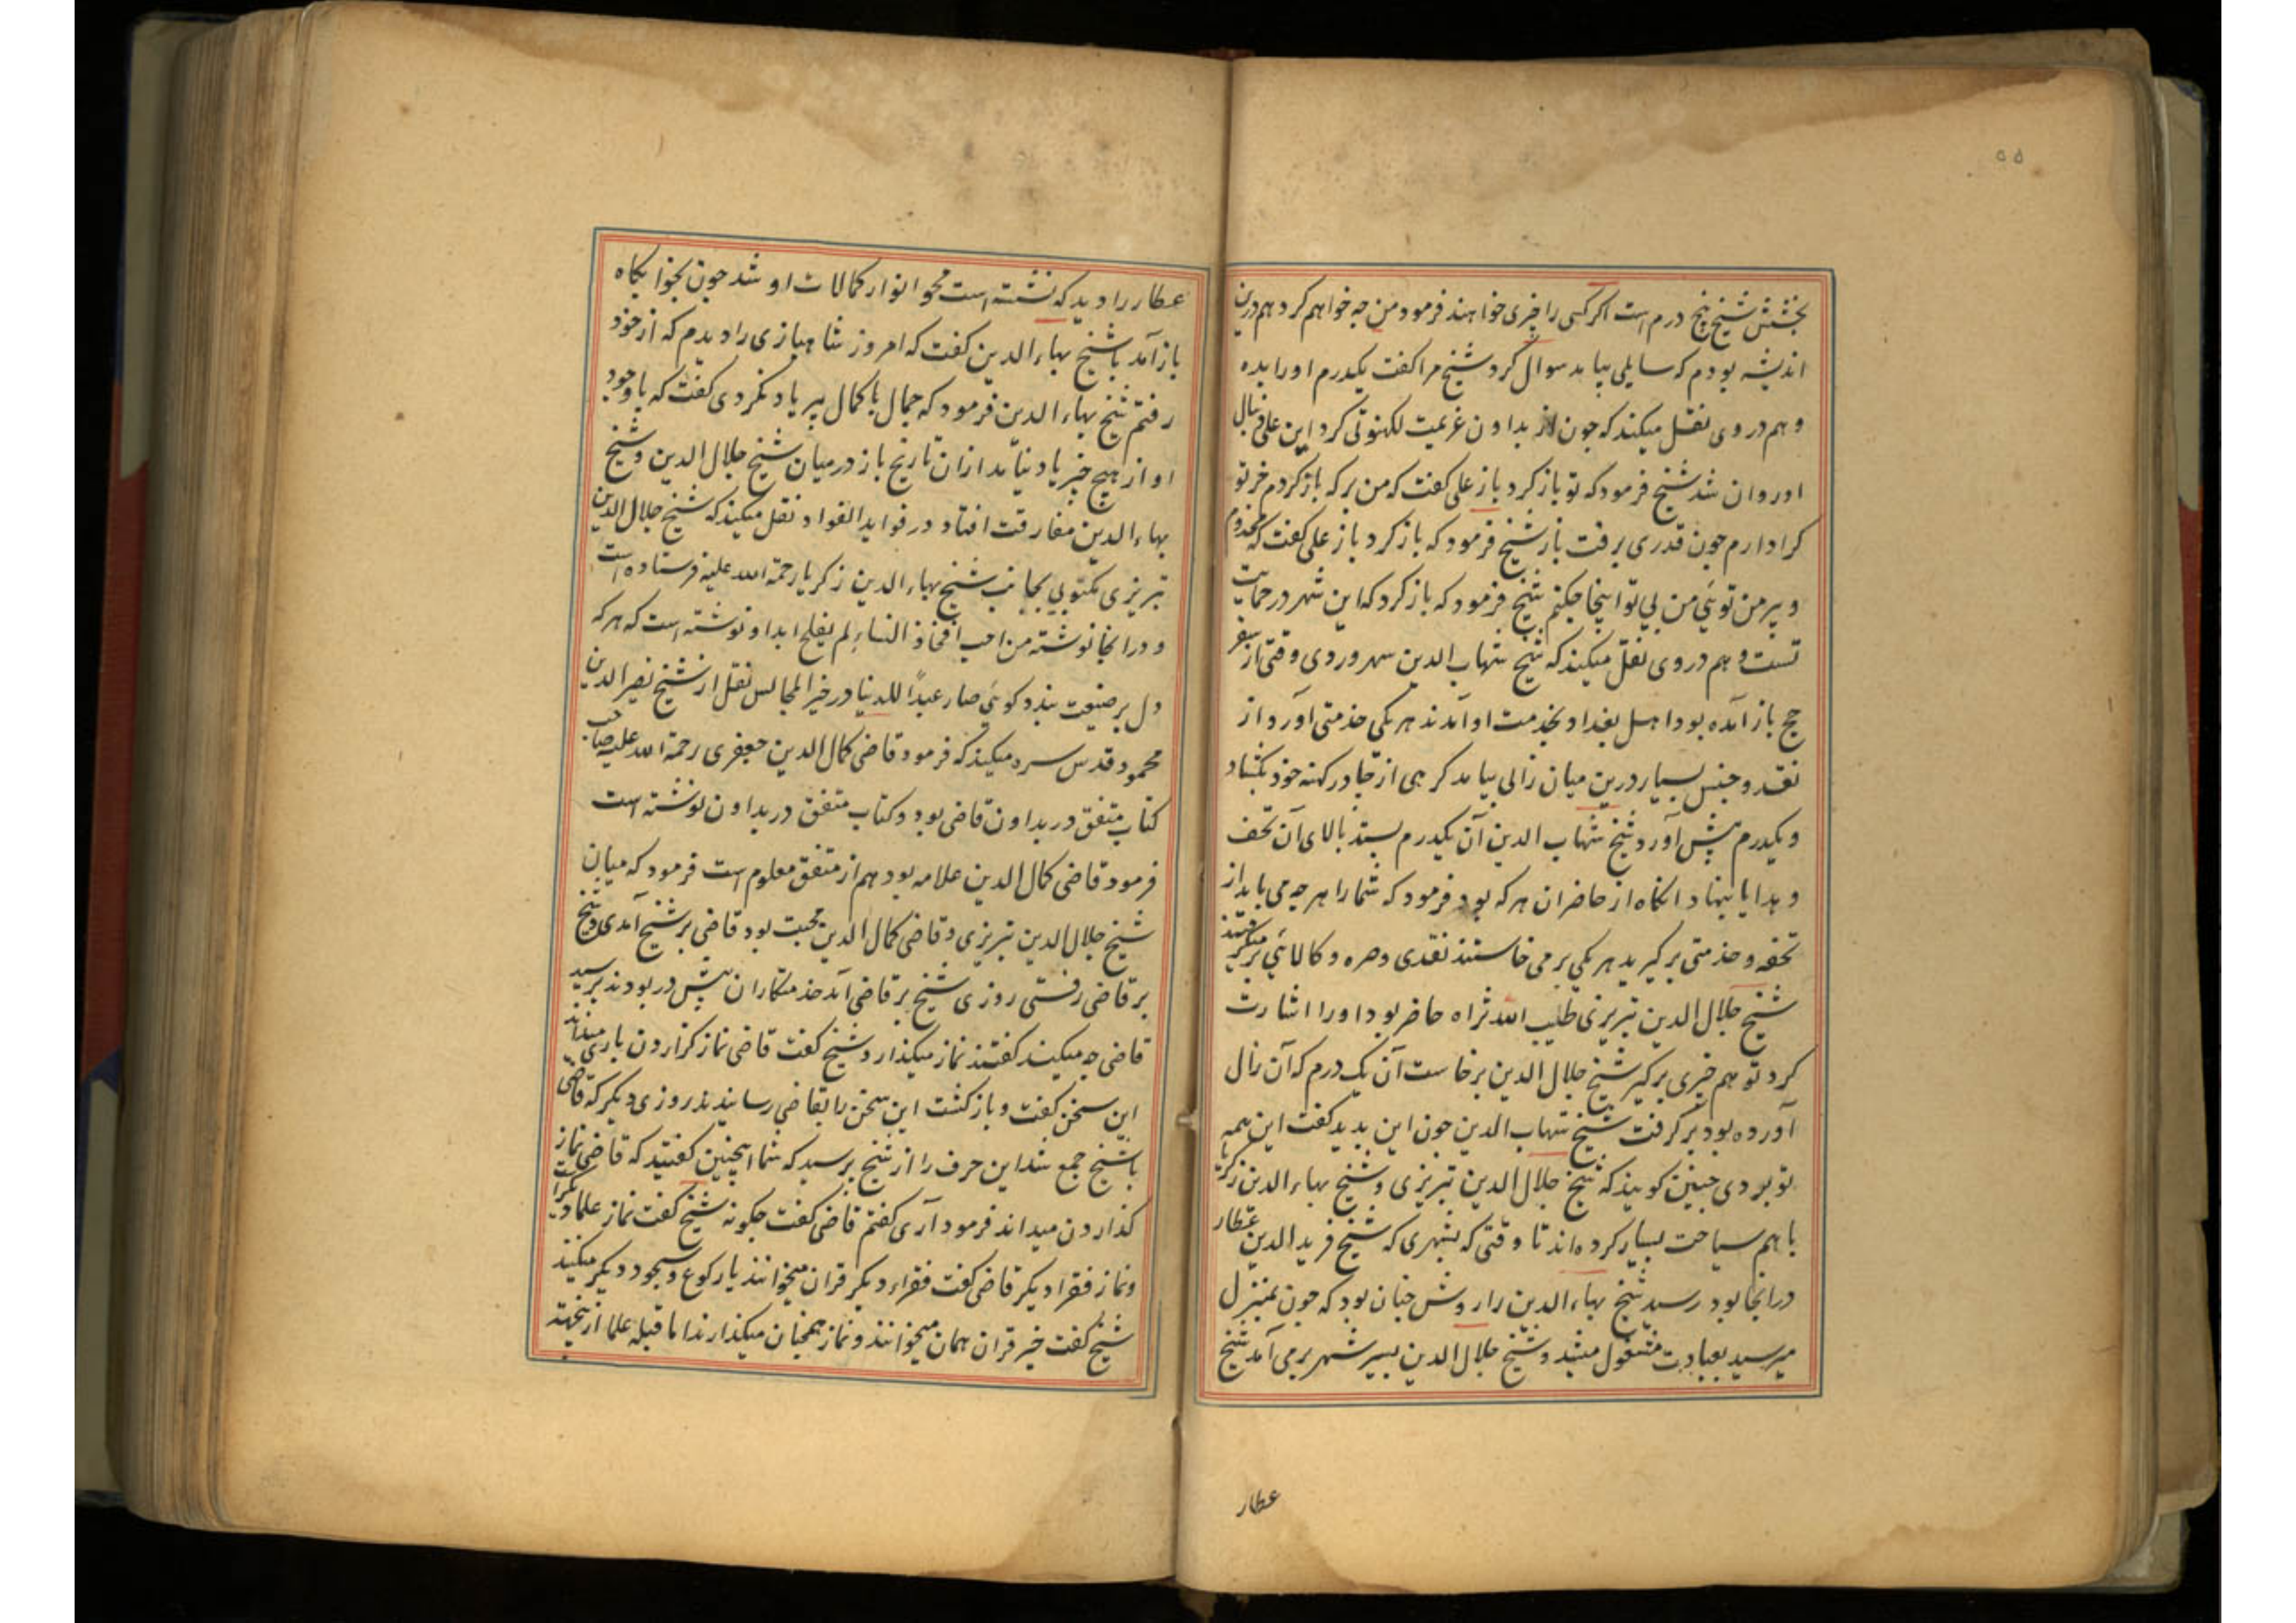 ۵۵
بخشش شیخ پنج درم است اکر کسی را چیزی خواهند فرمود من چه خواهم کرد هم درین
اندیشه بودم که سایلی بیامد سوال کرد شیخ مرا کفت یکدرم اورا بده
و هم در وی نقل میکند که چون از بداون عزیمت لکهنوتی کرد این علی دنبال
او روان شد شیخ فرمود که تو باز کرد باز علی کفت که من بر که باز کردم خر تو
کرا دارم چون قدری برفت باز شیخ فرمود که باز کرد باز علی کفت که مخدوم
و پیر من توئی من بی تو اینجا چکنم شیخ فرمود که باز کرد که این شهر در حمایت
تست و هم در وی نقل میکند که شیخ شهاب الدین سهروردی وقتی از سفر
حج باز آمده بود اهل بغداد بخدمت او آمدند هر یکی خدمتی آورد از
نقد و جنس بسیار درین میان زالی بیامد کرهی از چادر کهنه خود بکشاد
و یکدرم پیش آورد شیخ شهاب الدین آن یکدرم بستد بالای آن تحف
و هدایا بنهاد انکاه از حاضران هر که بود فرمود که شما را هر چه می باید از
تحفه و خدمتی برکیرید هر یکی بر می خاستند نقدی و صره و کالائی بر میکرفتند
شیخ جلال الدین تبریزی طیب الله ثراه حاضر بود او را اشارت
کرد تو هم چیزی برکیر شیخ جلال الدین برخاست آن یک درم که آن زال
آورده بود برکرفت شیخ شهاب الدین چون این بدید کفت این همه
تو بردی چنین کویند که شیخ جلال الدین تبریزی و شیخ بهاء الدین زکریا
با هم سیاحت بسیار کرده اند تا وقتی که بشهری که شیخ فرید الدین عطار
در انجا بود رسید شیخ بهاء الدین را روش چنان بود که چون بمنزل
میرسید بعبادت مشغول میشد و شیخ جلال الدین بسیر شهر برمی آمد شیخ
عطار
عطار را دید که نشسته است محو انوار کمالات او شد چون بخوابکاه
باز آمد با شیخ بهاء الدین کفت که امروز شاهبازی را دیدم که از خود
رفتم شیخ بهاء الدین فرمود که جمال با کمال پیر یاد نکردی کفت که باوجود
او از هیچ چیز یاد نیامد ازان تاریخ باز درمیان شیخ جلال الدین و شیخ
بهاء الدین مفارقت افتاد در فواید الفواد نقل میکند که شیخ جلال الدین
تبریزی مکتوبی بجانب شیخ بهاء الدین زکریا رحمة الله علیه فرستاده است
و در انجا نوشته من احب افخاذ النساء لم یفلح ابدا و نوشته است که هر که
دل بر ضیعت بندد کوئی صار عبدًا للدنیا در خیر المجالس نقل از شیخ نصیر الدین
محمود قدس سره میکند که فرمود قاضی کمال الدین جعفری رحمة الله علیه صاحب
کتاب متفق در بداون قاضی بود و کتاب متفق در بداون نوشته است
فرمود قاضی کمال الدین علامه بود هم از متفق معلوم است فرمود که میان
شیخ جلال الدین تبریزی و قاضی کمال الدین محبت بود قاضی بر شیخ آمدی و شیخ
بر قاضی رفتی روزی شیخ بر قاضی آمد خدمتکاران پیش در بودند پرسید
قاضی چه میکند کفتند نماز میکذارد شیخ کفت قاضی نماز کزاردن باری میداند
این سخن کفت و باز کشت این سخن را بقاضی رسانیدند روزی دیکر که قاضی
با شیخ جمع شد این حرف را از شیخ پرسید که شما اینچنین کفتید که قاضی نماز
کذاردن میداند فرمود آری کفتم قاضی کفت چکونه شیخ کفت نماز علما دیکر است
و نماز فقرا دیکر قاضی کفت فقراء دیکر قران میخوانند یا رکوع و سجود دیکر میکنند
شیخ کفت خیر قران همان میخوانند و نماز همچنان میکذارند اما قبله علما ازینجهته